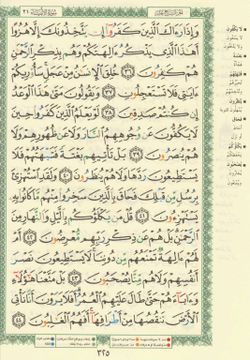 الجزء السابع عشر سورة الأنبياء ٢١
وَإِذَا رَءَاكَ ٱلَّذِينَ كَفَرُوٓا۟ إِن يَتَّخِذُونَكَ إِلَّا هُزُوًا
أَهَٰذَا ٱلَّذِى يَذْكُرُ ءَالِهَتَكُمْ وَهُم بِذِكْرِ ٱلرَّحْمَٰنِ
هُمْ كَٰفِرُونَ ٣٦ خُلِقَ ٱلْإِنسَٰنُ مِنْ عَجَلٍ سَأُو۟رِيكُمْ
ءَايَٰتِى فَلَا تَسْتَعْجِلُونِ ٣٧ وَيَقُولُونَ مَتَىٰ هَٰذَا ٱلْوَعْدُ
إِن كُنتُمْ صَٰدِقِينَ ٣٨ لَوْ يَعْلَمُ ٱلَّذِينَ كَفَرُوا۟ حِينَ
لَا يَكُفُّونَ عَن وُجُوهِهِمُ ٱلنَّارَ وَلَا عَن ظُهُورِهِمْ وَلَا
هُمْ يُنصَرُونَ ٣٩ بَلْ تَأْتِيهِم بَغْتَةً فَتَبْهَتُهُمْ فَلَا
يَسْتَطِيعُونَ رَدَّهَا وَلَا هُمْ يُنظَرُونَ ٤٠ وَلَقَدِ ٱسْتُهْزِئَ
بِرُسُلٍ مِّن قَبْلِكَ فَحَاقَ بِٱلَّذِينَ سَخِرُوا۟ مِنْهُم مَّا كَانُوا۟ بِهِۦ
يَسْتَهْزِءُونَ ٤١ قُلْ مَن يَكْلَؤُكُم بِٱلَّيْلِ وَٱلنَّهَارِ مِنَ
ٱلرَّحْمَٰنِ بَلْ هُمْ عَن ذِكْرِ رَبِّهِم مُّعْرِضُونَ ٤٢ أَمْ
لَهُمْ ءَالِهَةٌ تَمْنَعُهُم مِّن دُونِنَا لَا يَسْتَطِيعُونَ نَصْرَ
أَنفُسِهِمْ وَلَا هُم مِّنَّا يُصْحَبُونَ ٤٣ بَلْ مَتَّعْنَا هَٰٓؤُلَآءِ
وَءَابَآءَهُمْ حَتَّىٰ طَالَ عَلَيْهِمُ ٱلْعُمُرُ أَفَلَا يَرَوْنَ أَنَّا نَأْتِى
ٱلْأَرْضَ نَنقُصُهَا مِنْ أَطْرَافِهَآ أَفَهُمُ ٱلْغَٰلِبُونَ ٤٤
٣٢٥